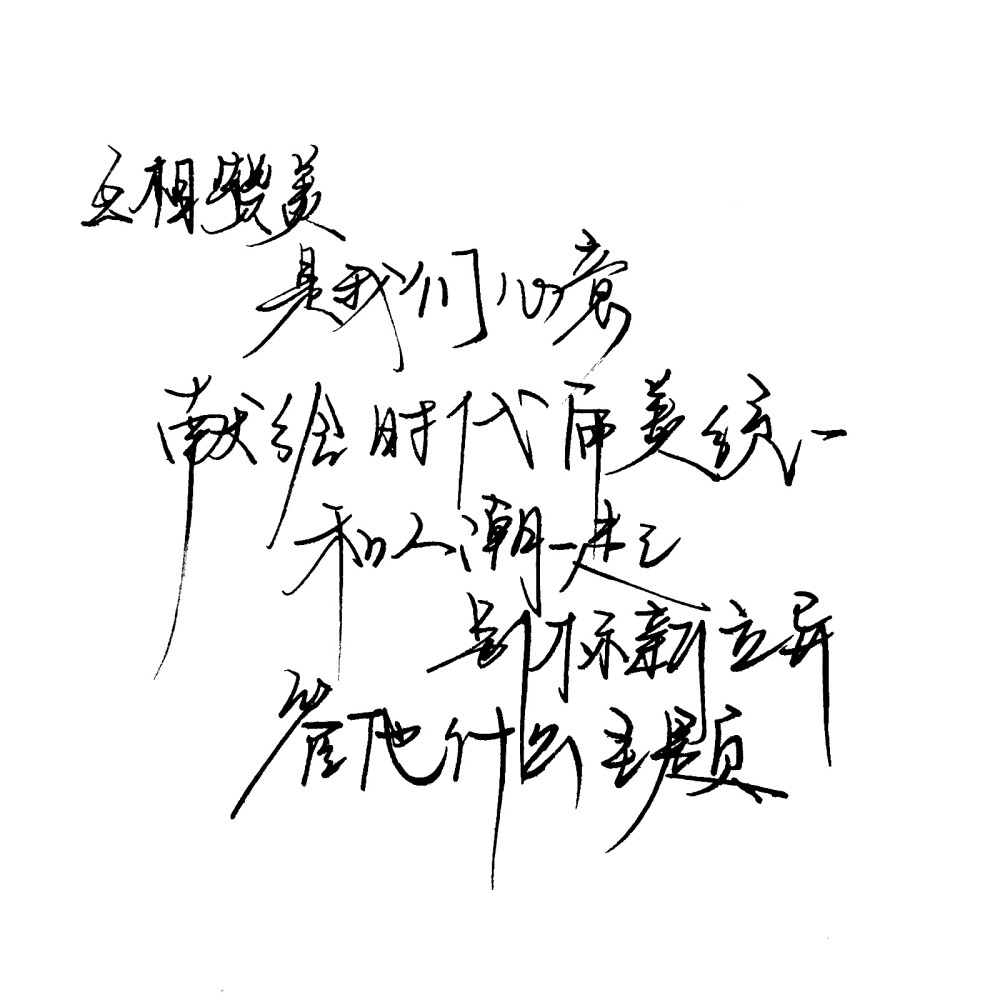 互相赞美
是我们心意
献给时代审美统一
和人潮一起
别标新立异
管他什么主题